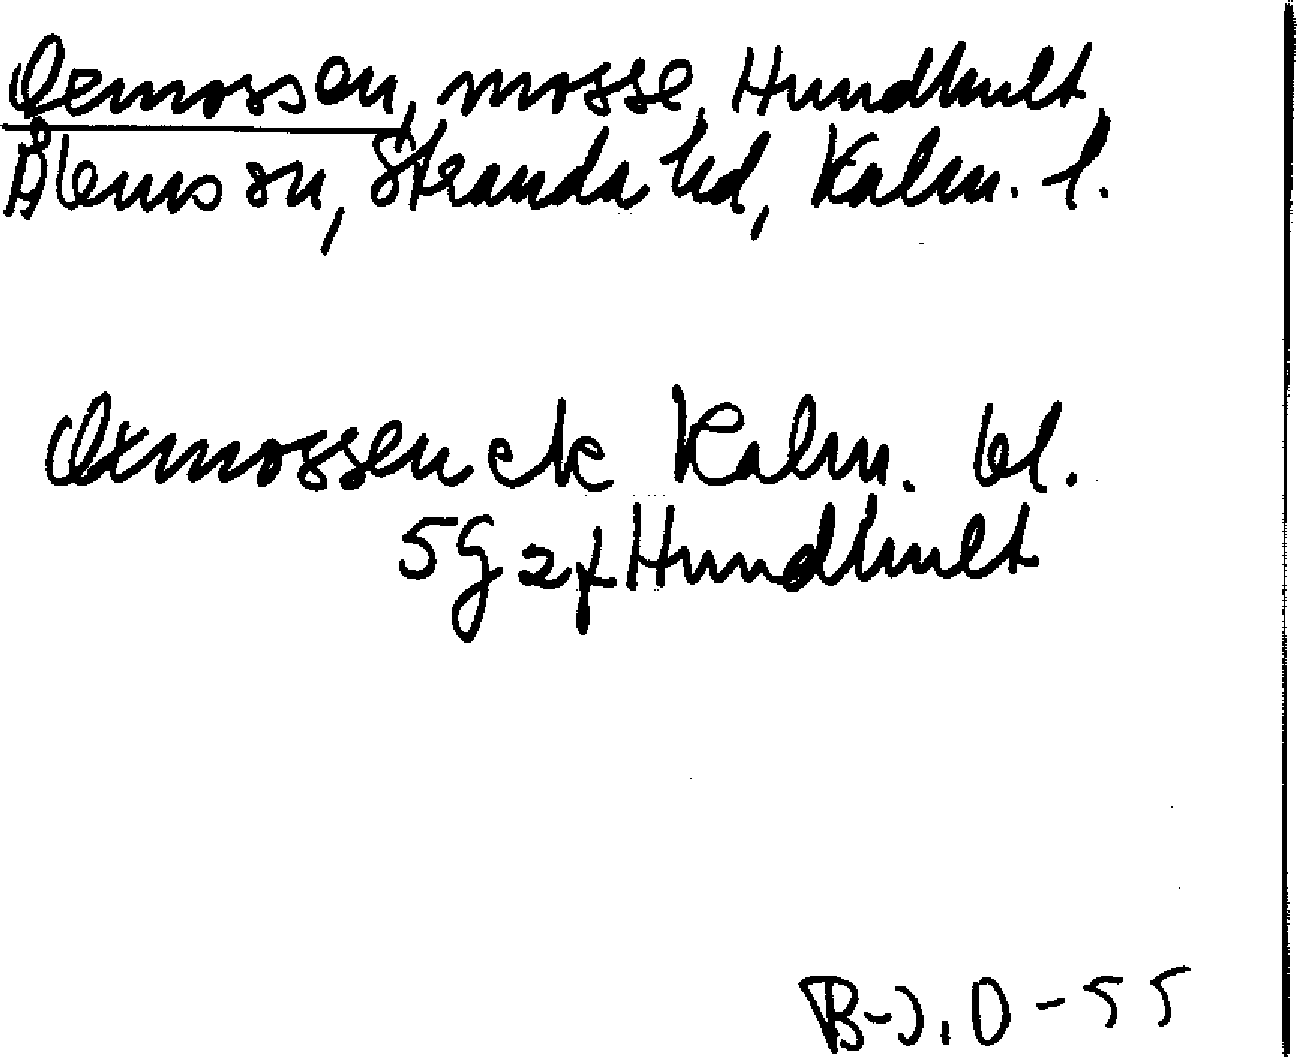 Oxmossen, mosse, Hundhult,
Ålems sn, Stranda hd, Kalm. l.
Oxmossen ek Kalm. bl.
5G 2f Hundhult
B-J. O -55